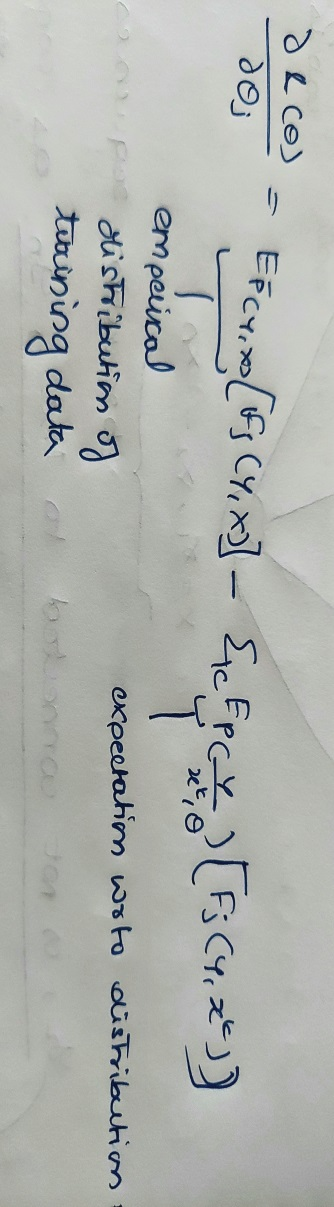 ∂L(θ)/∂θj = E_P̃(Y,X) [Fj(Y,X)] − Σ_k E_P(Y/x^k,θ) [Fj(Y,x^k)]
empirical
distribution of
training data
expectation wrto distribution